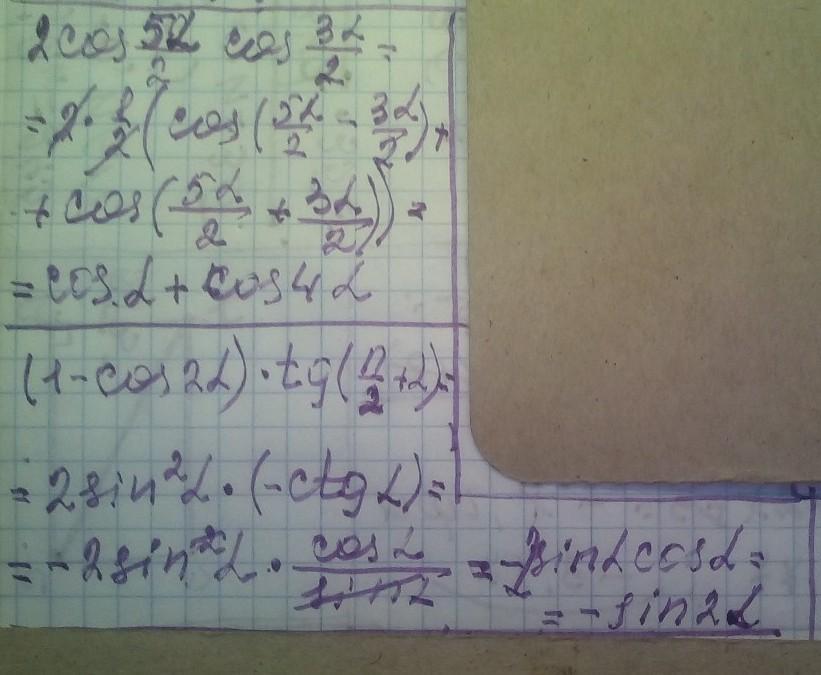 2cos 5α/2 cos 3α/2 =
= 2 · 1/2 (cos(5α/2 - 3α/2) +
+ cos(5α/2 + 3α/2)) =
= cos α + cos 4α
(1 - cos 2α) · tg(π/2 + α) =
= 2 sin²α · (-ctg α) =
= -2 sin²α · cos α/sin α = -2 sin α cos α =
= -sin 2α